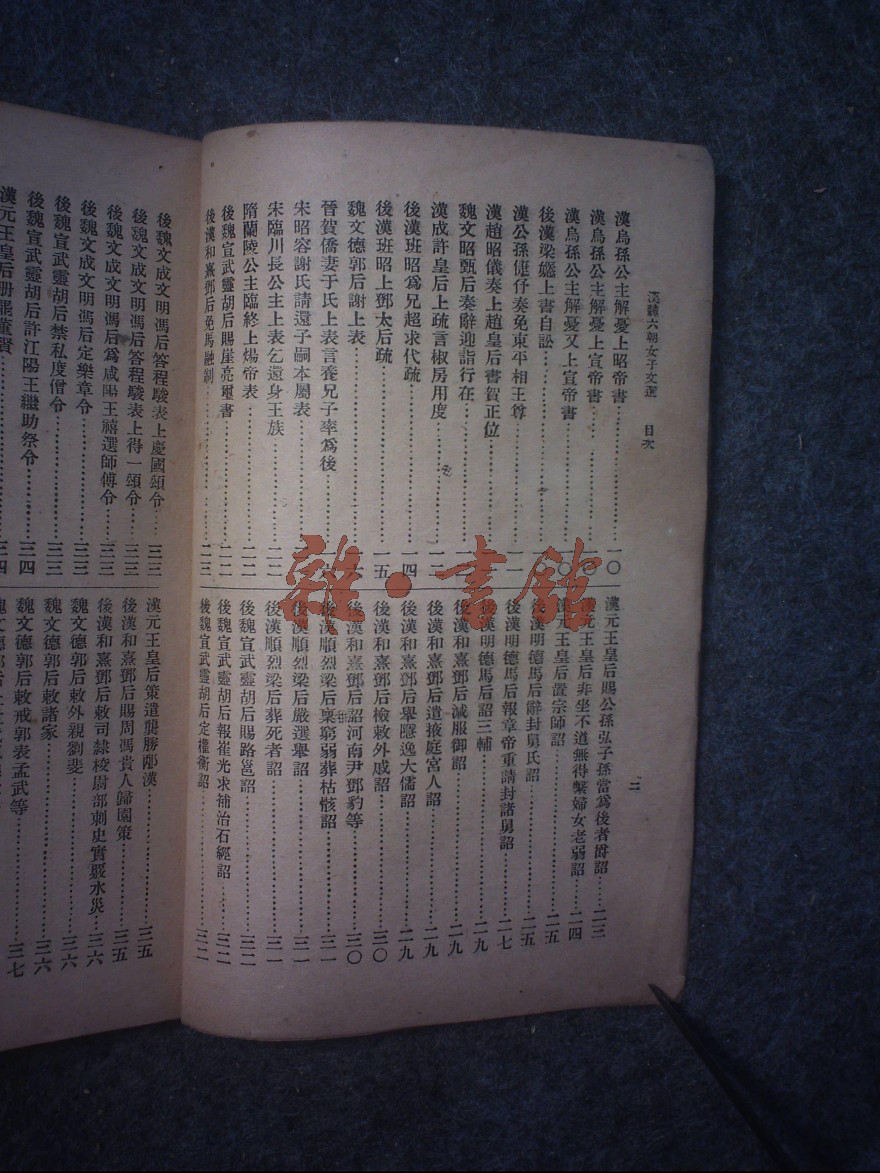 漢魏六朝女子文選　目次
二
漢烏孫公主解憂上昭帝書⋯⋯一〇
漢烏孫公主解憂上宣帝書⋯⋯
漢烏孫公主解憂又上宣帝書⋯⋯〇
後漢梁嫕上書自訟⋯⋯一
漢公孫倢伃奏免東平相王尊⋯⋯一
漢趙昭儀奏上趙皇后書賀正位⋯⋯一
魏文昭甄后奏辭迎詣行在⋯⋯一
漢成許皇后上疏言椒房用度⋯⋯一二
後漢班昭爲兄超求代疏⋯⋯一四
後漢班昭上鄧太后疏⋯⋯一五
魏文德郭后謝上表⋯⋯
晉賀僑妻于氏上表言養兄子率爲後⋯⋯
宋昭容謝氏請還子嗣本屬表⋯⋯
宋臨川長公主上表乞還身王族⋯⋯二二
隋蘭陵公主臨終上煬帝表⋯⋯二二
後魏宣武靈胡后賜崔亮璽書⋯⋯二二
後漢和熹鄧后免馬融制⋯⋯二三
漢元王皇后賜公孫弘子孫當爲後者爵詔⋯⋯二三
漢元王皇后非坐不道無得繫婦女老弱詔⋯⋯二四
漢元王皇后置宗師詔⋯⋯二五
後漢明德馬后辭封舅氏詔⋯⋯二五
後漢明德馬后報章帝重請封諸舅詔⋯⋯二七
後漢明德馬后詔三輔⋯⋯二九
後漢和熹鄧后減服御詔⋯⋯二九
後漢和熹鄧后遣掖庭宮人詔⋯⋯二九
後漢和熹鄧后舉隱逸大儒詔⋯⋯二九
後漢和熹鄧后檢敕外戚詔⋯⋯三〇
後漢和熹鄧后詔河南尹鄧豹等⋯⋯三〇
後漢順烈梁后稟窮弱葬枯骸詔⋯⋯三一
後漢順烈梁后嚴選舉詔⋯⋯三一
後漢順烈梁后葬死者詔⋯⋯三一
後魏宣武靈胡后賜路邕詔⋯⋯三二
後魏宣武靈胡后報崔光求補治石經詔⋯⋯三二
後魏宣武靈胡后定權衡詔⋯⋯三二
後魏文成文明馮后答程駿表上慶國頌令⋯⋯三三
後魏文成文明馮后答程駿表上得一頌令⋯⋯三三
後魏文成文明馮后爲咸陽王禧選師傅令⋯⋯三三
後魏文成文明馮后定樂章令⋯⋯三三
後魏宣武靈胡后禁私度僧令⋯⋯三三
後魏宣武靈胡后許江陽王繼助祭令⋯⋯三四
漢元王皇后册罷董賢⋯⋯三四
漢元王皇后策遣龔勝邴漢⋯⋯三五
後漢和熹鄧后賜周馮貴人歸園策⋯⋯三五
後漢和熹鄧后敕司隸校尉部刺史實覈水災⋯⋯三六
魏文德郭后敕外親劉斐⋯⋯三六
魏文德郭后敕諸家⋯⋯三六
魏文德郭后敕戒郭表孟武等⋯⋯三七
雜·書館